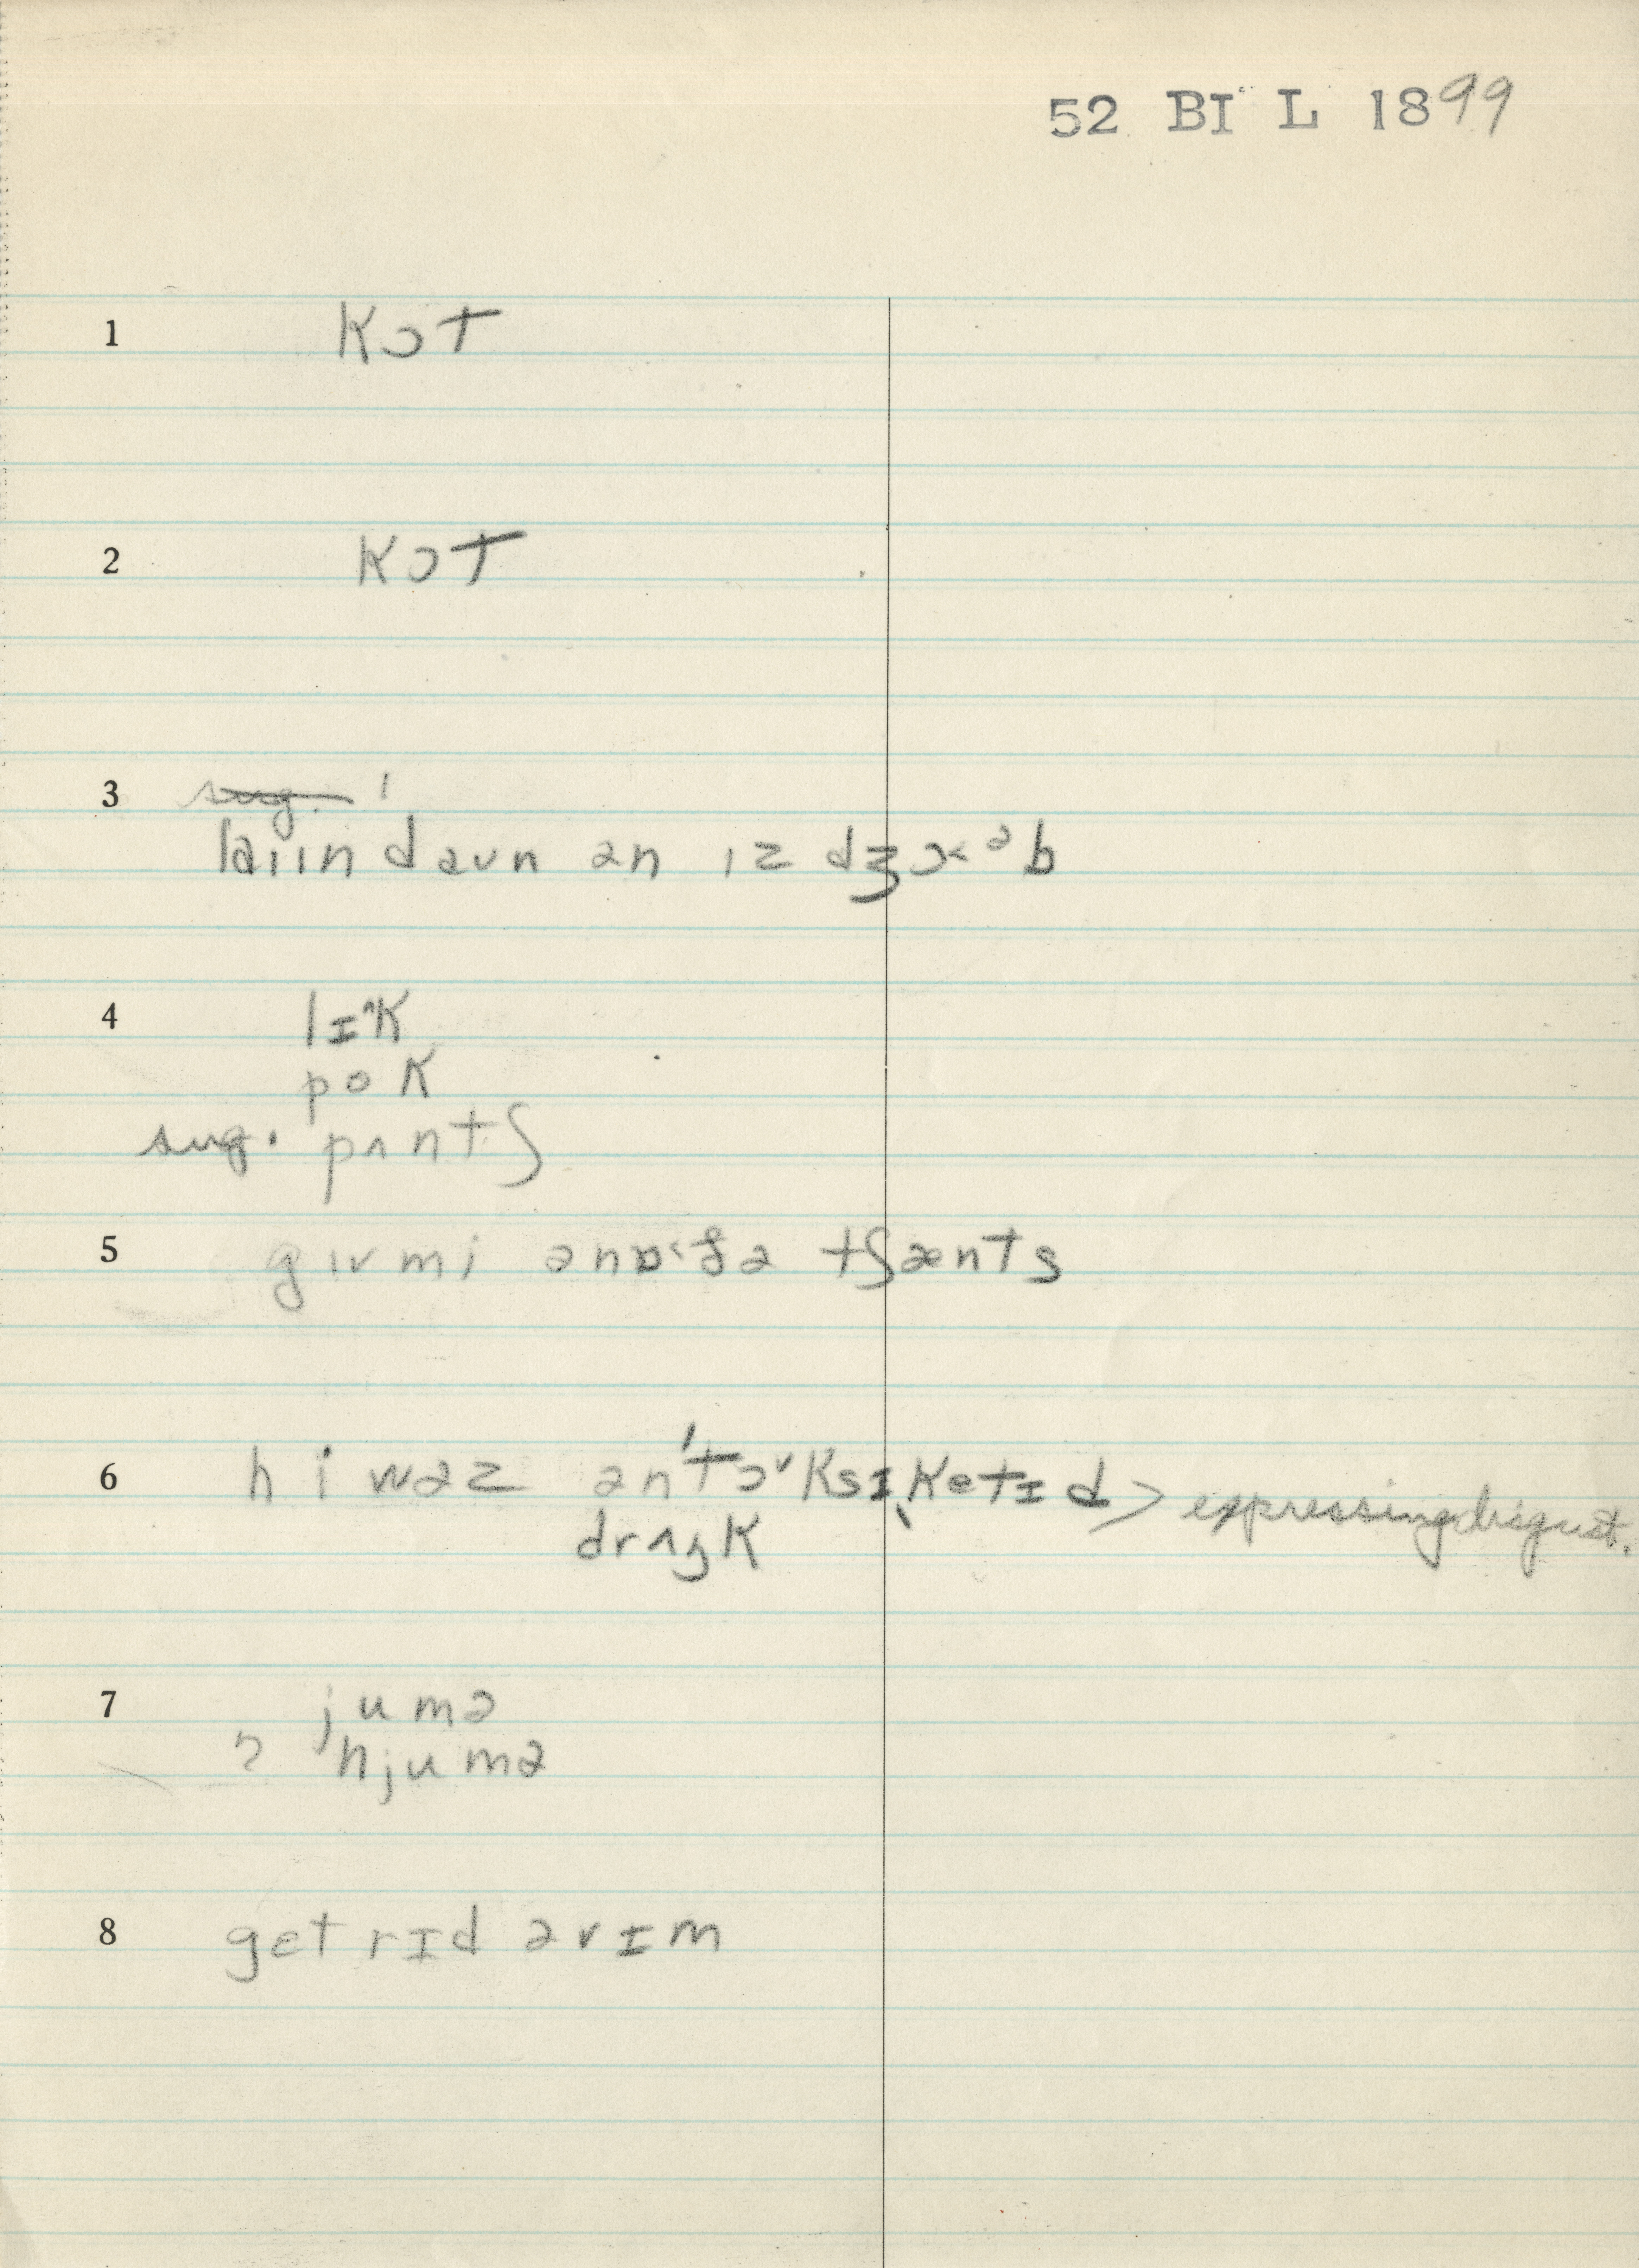 52 BI L 1899
1 kɔt
2 kɔt
3 sug. '
laiin daun ən ız dʒɔ<ᵊb
4 lɪ^k
pok
sug. pʌntʃ
5 gıv mi ənɒ‹ðə tʃænts
6 hi wəz ən'tɔ˅ksɪˌketɪd > expressing disgust.
drʌŋk
7 jumə
? hjumə
8 get rɪd əvɪm